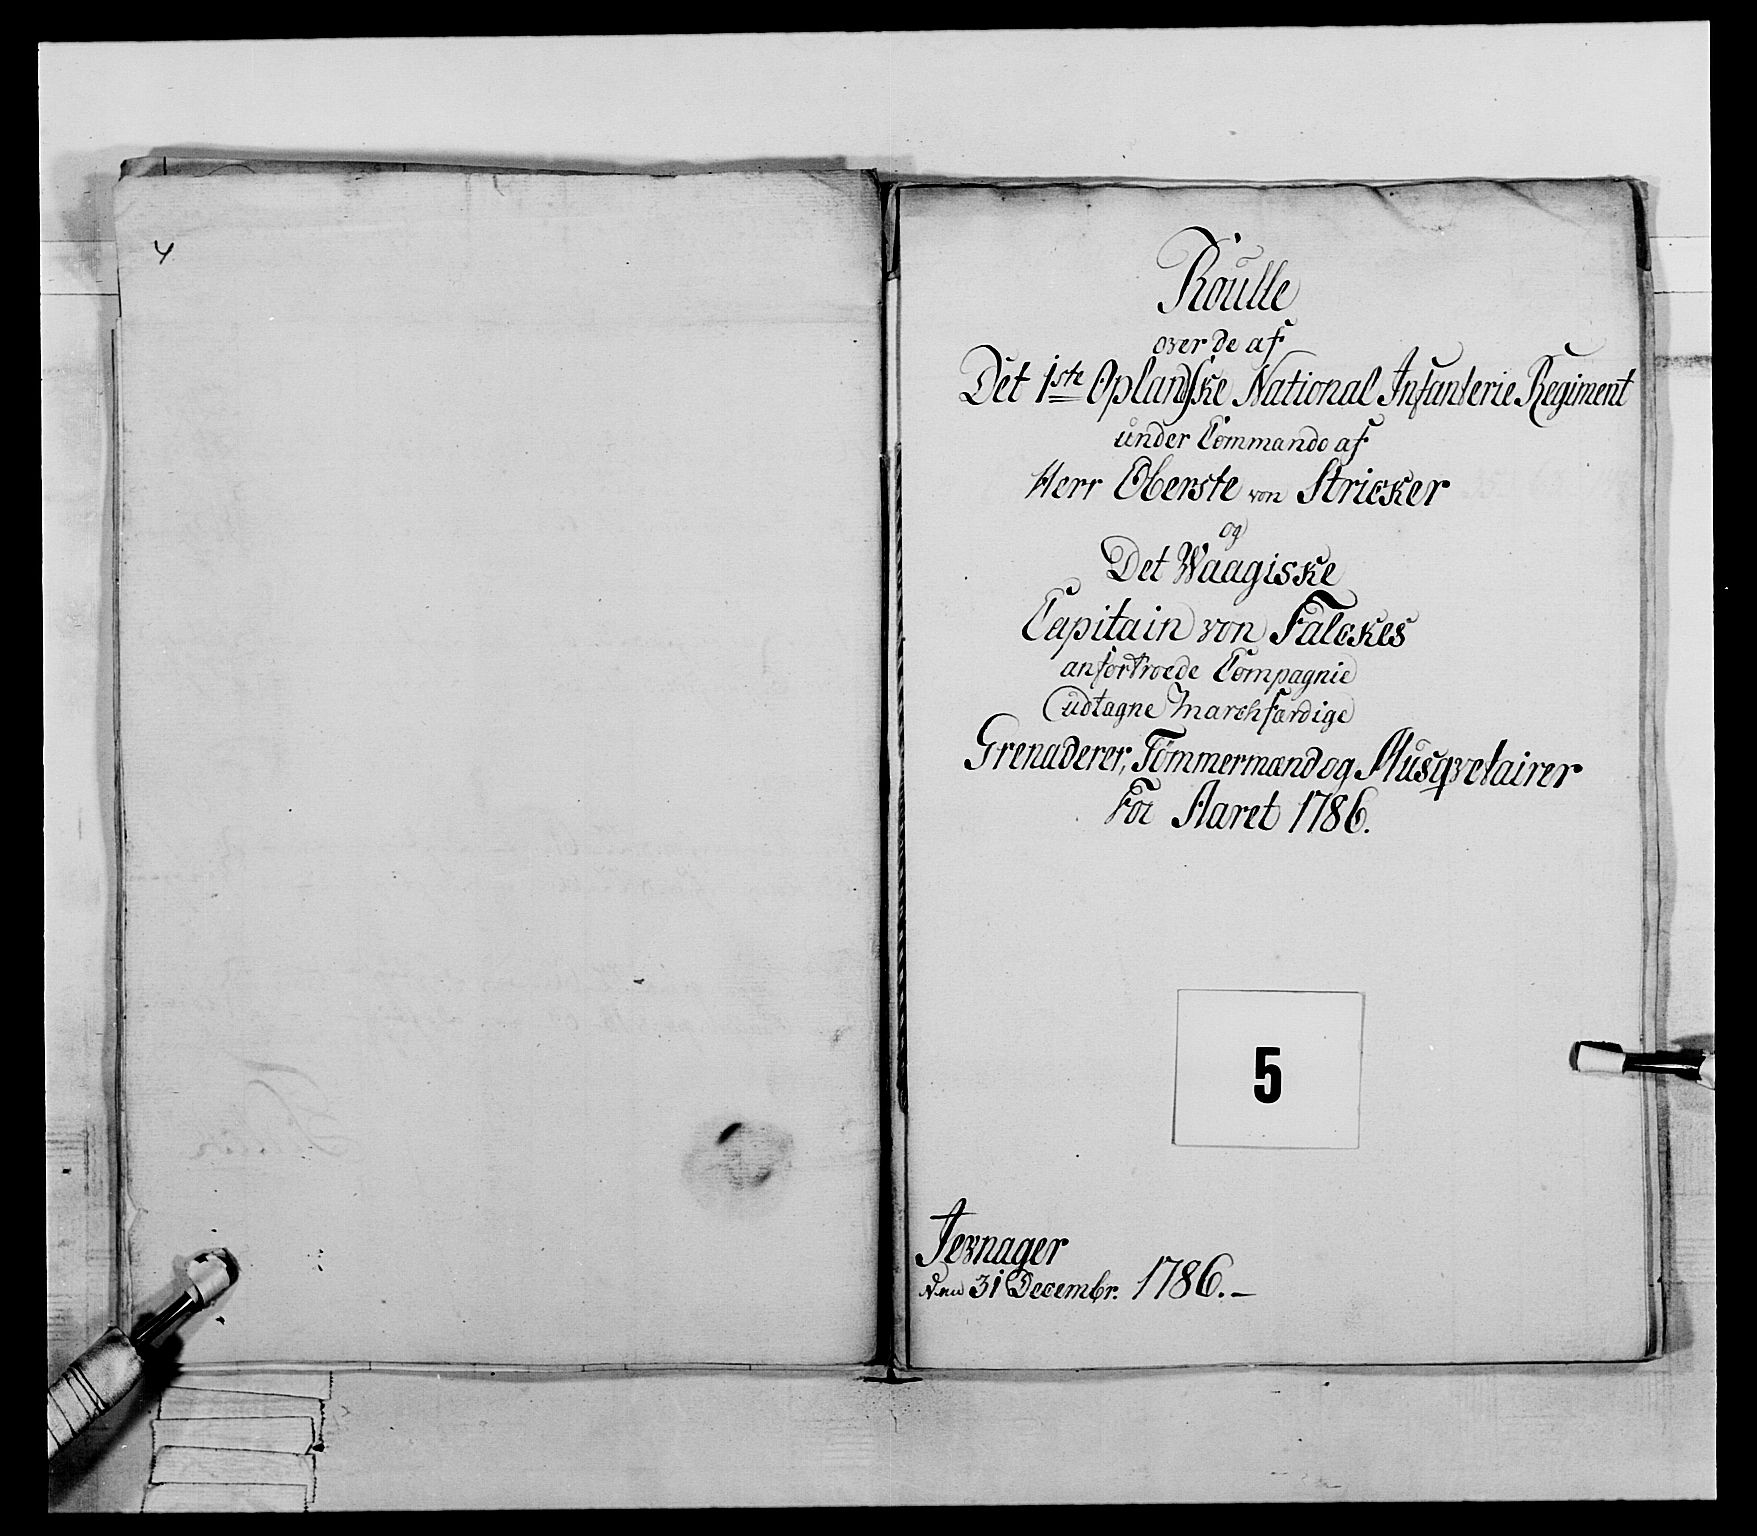 4
Roulle
over de af
Det 1ste Oplandske National Infanterie Regiment
under Commando af
Herr Oberste von Stricker
og
Det Waagiske
Capitain von Falckes
anfortroede Compagnie
udtagne Marchfærdige
Grenaderer, Tømmermænd og Musqvetairer
For Aaret 1786.
5
Jevnager
den 31 Decembr. 1786.-